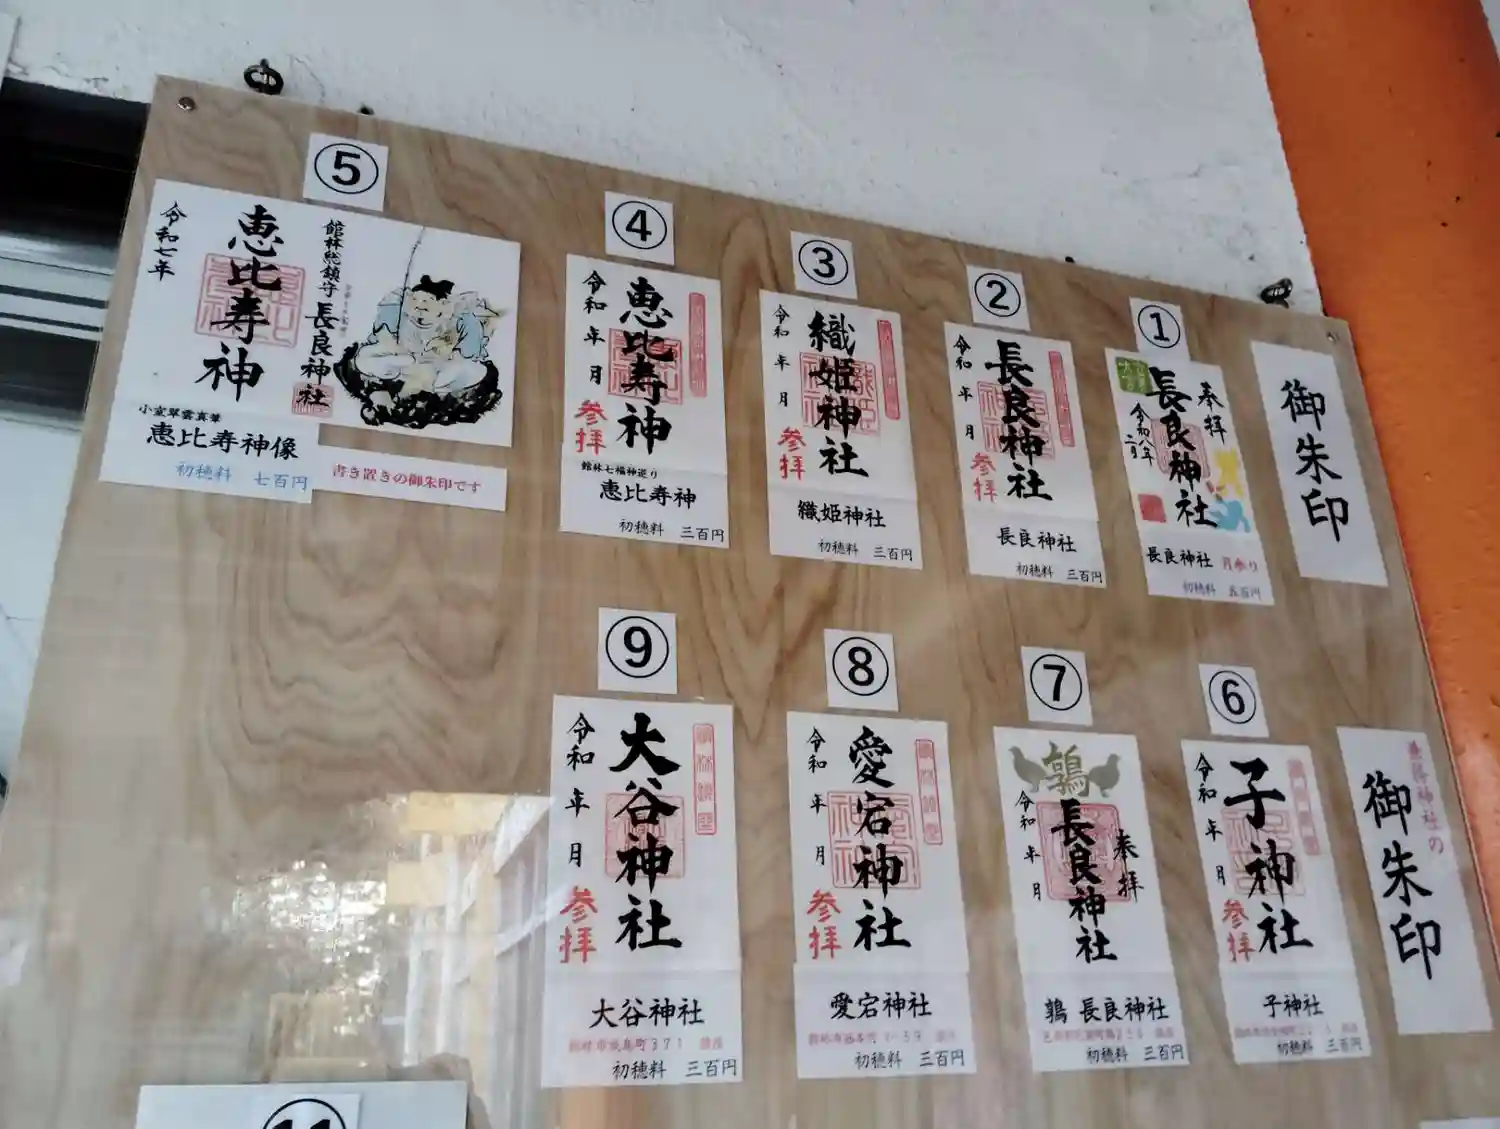 御朱印
①
奉拝
長良神社
令和八年
二月
長良神社 月参り
初穂料 五百円
②
長良神社
令和 年 月
参拝
長良神社
初穂料 三百円
③
織姫神社
令和 年 月
参拝
織姫神社
初穂料 三百円
④
恵比寿神
令和 年 月
参拝
館林七福神巡り
恵比寿神
初穂料 三百円
⑤
館林総鎮守
長良神社
恵比寿神
令和七年
小室翠雲真筆
恵比寿神像
初穂料 七百円
書き置きの御朱印です
兼務神社の
御朱印
⑥
子神社
令和 年 月
参拝
子神社
初穂料 三百円
⑦
鶉
奉拝
長良神社
令和 年 月
鶉 長良神社
初穂料 三百円
⑧
愛宕神社
令和 年 月
参拝
愛宕神社
初穂料 三百円
⑨
大谷神社
令和 年 月
参拝
大谷神社
初穂料 三百円